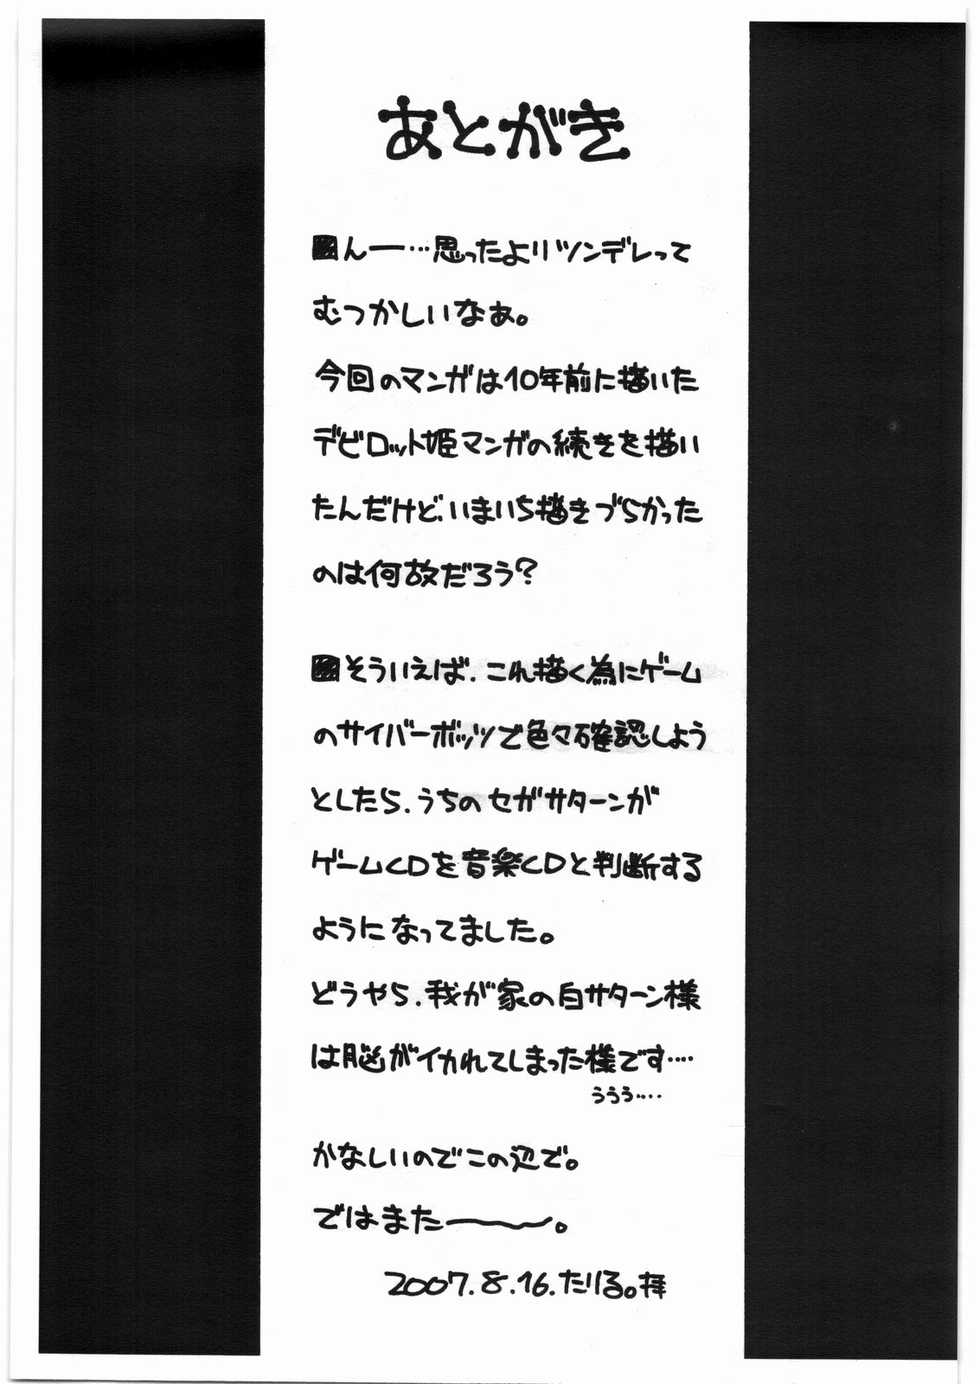 あとがき
んー…思ったよりツンデレって
むつかしいなあ。
今回のマンガは10年前に描いた
デビロット姫マンガの続きを描い
たんだけど、いまいち描きづらかった
のは何故だろう？
そういえば、これ描く為にゲーム
のサイバーボッツで色々確認しよう
としたら、うちのセガサターンが
ゲームCDを音楽CDと判断する
ようになってました。
どうやら、我が家の白サターン様
は脳がイカれてしまった様です‥‥
ううう‥‥
かなしいのでこの辺で。
ではまたー〜〜。
2007.8.16.たりる。拝